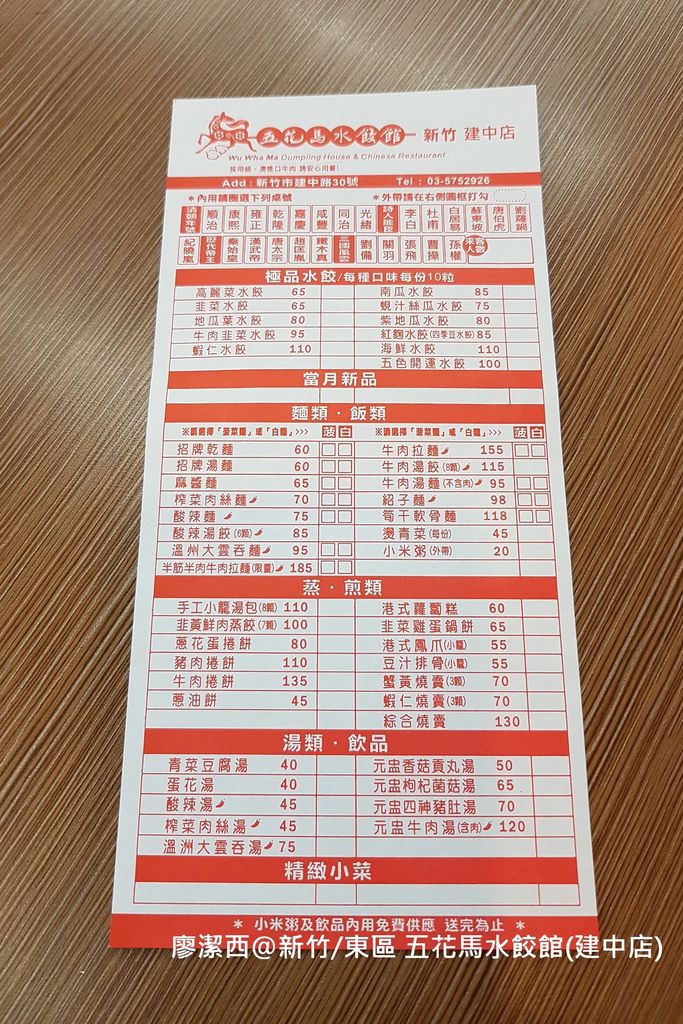 五花馬水餃館 新竹 建中店
Wu Wha Ma Dumpling House & Chinese Restaurant
採用紐、澳進口牛肉 請安心用餐!
Add : 新竹市建中路30號 Tel : 03-5752926
*內用請圈選下列桌號 *外帶請在右側圓框打勾
清朝年號 順治 康熙 雍正 乾隆 嘉慶 咸豐 同治 光緒 詩人能臣 李白 杜甫 白居易 蘇東坡 唐伯虎 劉羅鍋
紀曉嵐 歷代帝王 秦始皇 漢武帝 唐太宗 趙匡胤 鐵木真 三國風雲 劉備 關羽 張飛 曹操 孫權 來客人數
極品水餃/每種口味每份10粒
高麗菜水餃 65 南瓜水餃 85
韭菜水餃 65 蜆汁絲瓜水餃 75
地瓜葉水餃 80 紫地瓜水餃 80
牛肉韭菜水餃 95 紅麴水餃(四季豆水餃) 85
蝦仁水餃 110 海鮮水餃 110
五色開運水餃 100
當月新品
麵類‧飯類
※請選擇「菠菜麵」或「白麵」>>> 菠 白 ※請選擇「菠菜麵」或「白麵」>>> 菠 白
招牌乾麵 60 牛肉拉麵 155
招牌湯麵 60 牛肉湯餃(8顆) 115
麻醬麵 65 牛肉湯麵(不含肉) 95
榨菜肉絲麵 70 紹子麵 98
酸辣麵 75 筍干軟骨麵 118
酸辣湯餃(6顆) 85 燙青菜(每份) 45
溫州大雲吞麵 95 小米粥(外帶) 20
半筋半肉牛肉拉麵(限量) 185
蒸‧煎類
手工小籠湯包(8顆) 110 港式蘿蔔糕 60
韭黃鮮肉蒸餃(7顆) 100 韭菜雞蛋鍋餅 65
蔥花蛋捲餅 80 港式鳳爪(小籠) 55
豬肉捲餅 110 豆汁排骨(小籠) 55
牛肉捲餅 135 蟹黃燒賣(3顆) 70
蔥油餅 45 蝦仁燒賣(3顆) 70
綜合燒賣 130
湯類‧飲品
青菜豆腐湯 40 元盅香菇貢丸湯 50
蛋花湯 40 元盅枸杞菌菇湯 65
酸辣湯 45 元盅四神豬肚湯 70
榨菜肉絲湯 45 元盅牛肉湯(含肉) 120
溫洲大雲吞湯 75
精緻小菜
* 小米粥及飲品內用免費供應 送完為止 *
廖潔西@新竹/東區 五花馬水餃館(建中店)